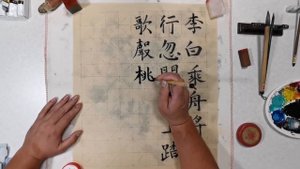 李白乘舟將
行忽聞上踏
歌聲桃